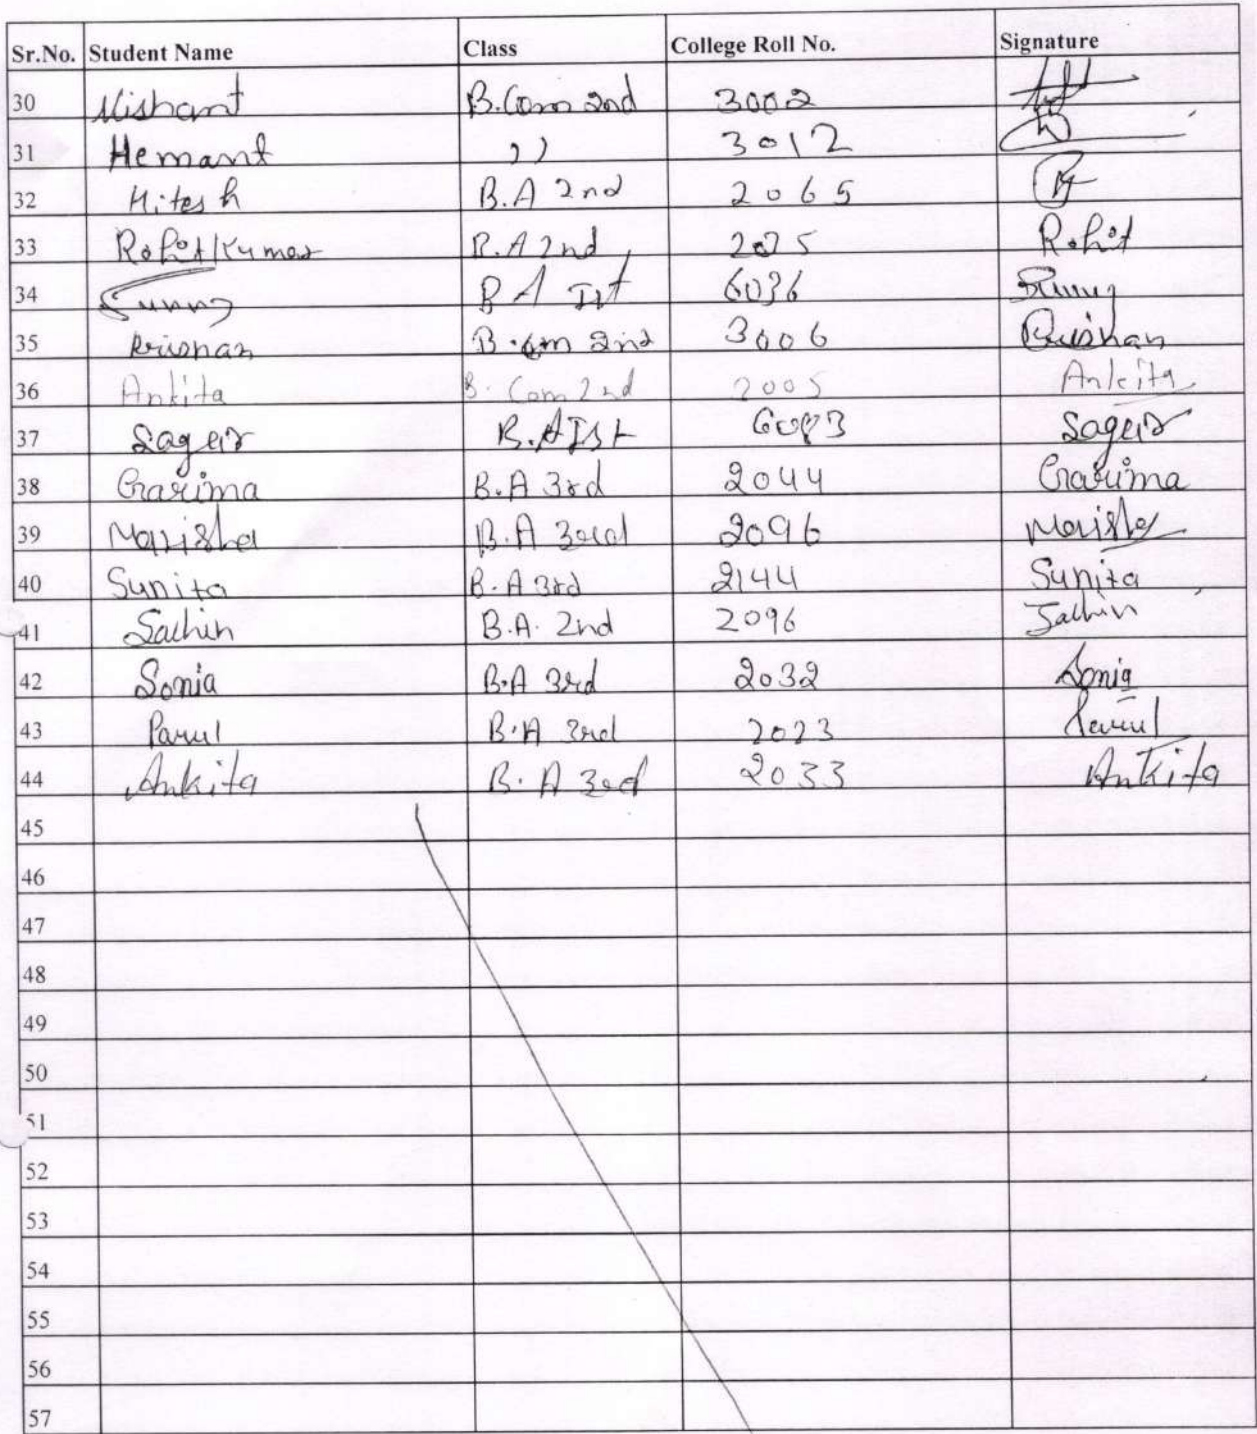 Sr.No. Student Name Class College Roll No. Signature
30 Nishant B.Com 2nd 3002
31 Hemant ,, 3012
32 Hitesh B.A 2nd 2065
33 Rohit Kumar B.A 2nd 2075 Rohit
34 Sunny B A Ist 6036 Sunny
35 Krishan B.Com 2nd 3006 Krishan
36 Ankita B. Com 2nd 2005 Ankita
37 Sagar B.A Ist Sagar
38 Garima B.A 3rd 2044 Garima
39 Manisha B.A 3rd 2096 Manisha
40 Sunita B.A 3rd 2144 Sunita
41 Sachin B.A. 2nd 2096 Sachin
42 Sonia B.A 3rd 2032 Sonia
43 Parul B.A 3rd 2023 Parul
44 Ankita B.A 3rd 2033 Ankita
45
46
47
48
49
50
51
52
53
54
55
56
57